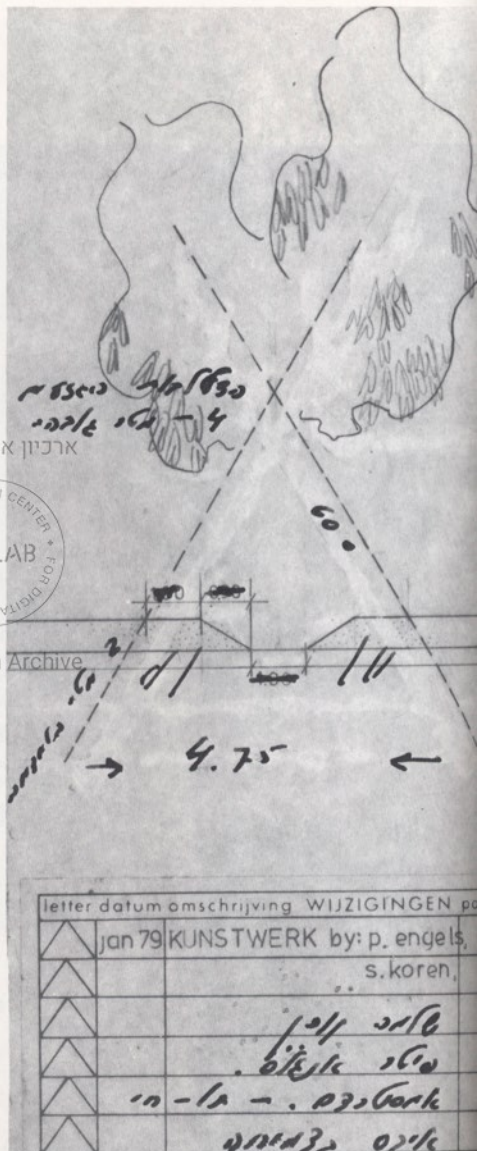 הצטלבות
4 – מטר גובה
ארכיון א
CENTER • FOR DIGITA
LAB
60°
Archive
4.75
letter datum omschrijving WIJZIGINGEN
jan 79 KUNSTWERK by: p. engels,
s. koren,
שלמה קורן
פיטר אנגלס .
אמסטרדם . – תל-חי